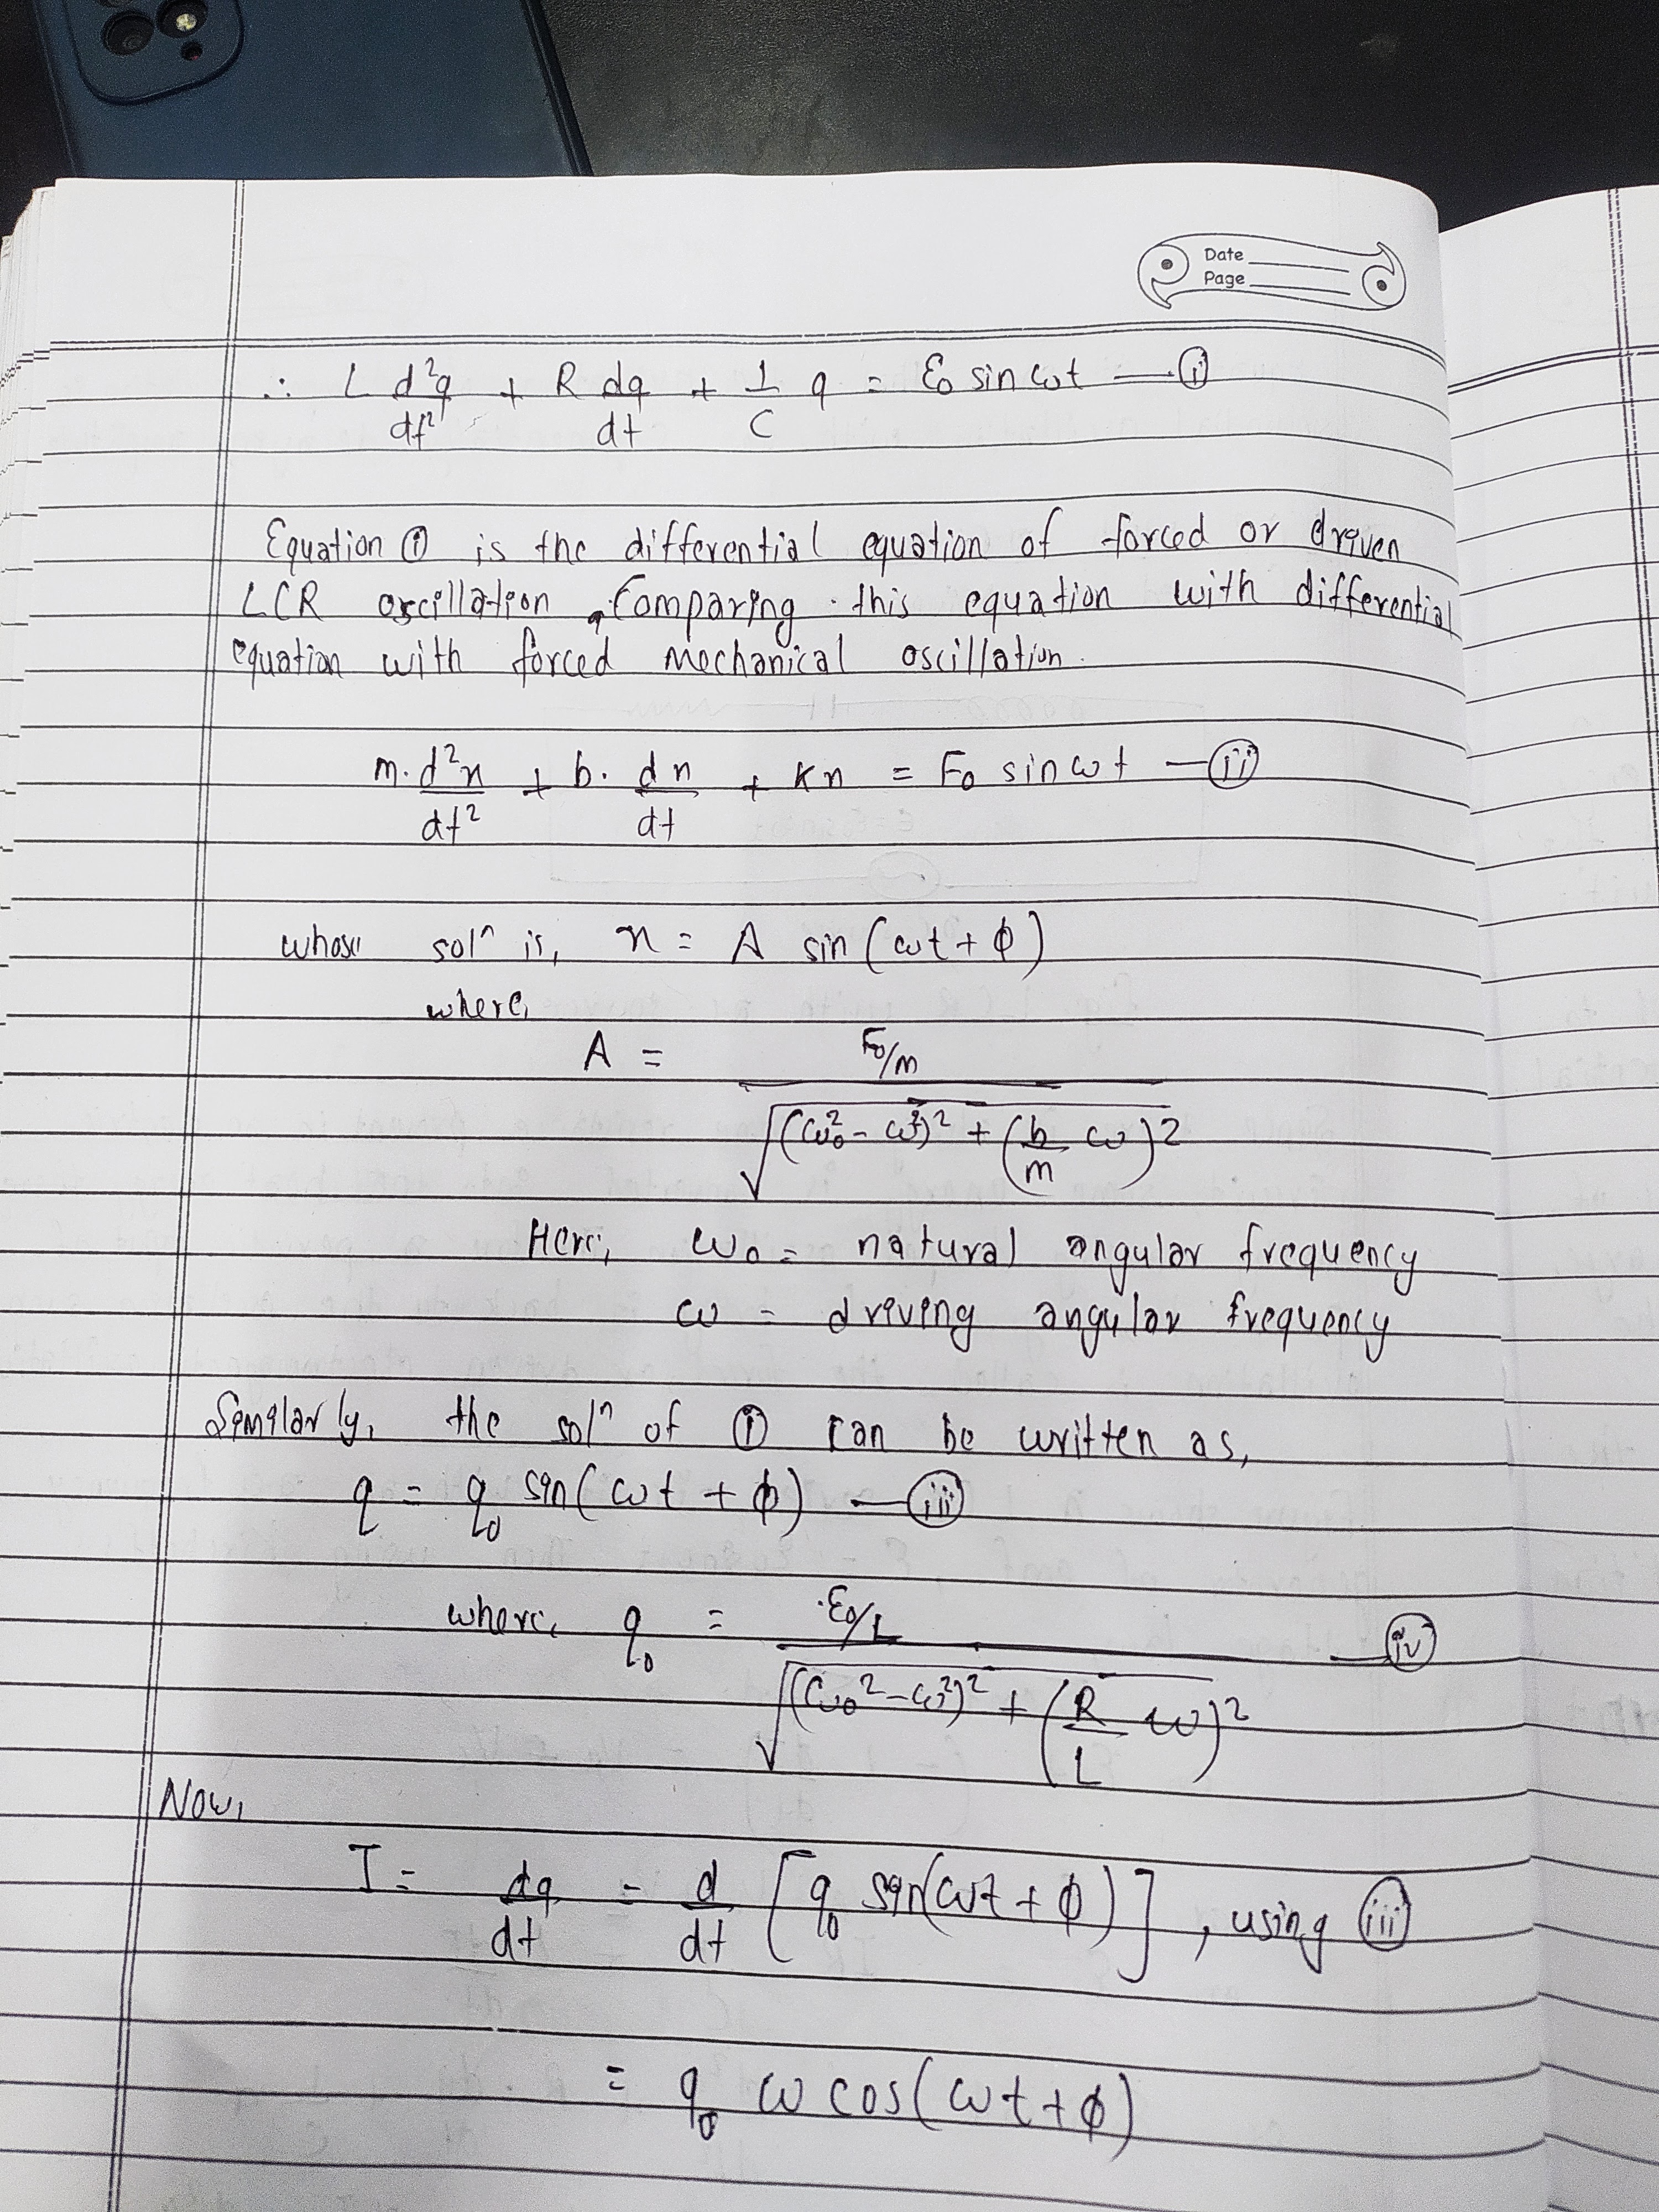 Date
Page
∴ L d²q/dt² + R dq/dt + 1/C q = ε₀ sin ωt — (i)
Equation (i) is the differential equation of forced or driven
LCR oscillation. Comparing this equation with differential
equation with forced mechanical oscillation.
m. d²x/dt² + b. dx/dt + Kx = F₀ sin ωt — (ii)
whose solⁿ is, x = A sin (ωt + φ)
where,
A = F₀/m / √((ω₀² - ω²)² + (b/m ω)²)
Here, ω₀ = natural angular frequency
ω = driving angular frequency
Similarly, the solⁿ of (i) can be written as,
q = q₀ sin(ωt + φ) — (iii)
where, q₀ = ε₀/L / √((ω₀² - ω²)² + (R/L ω)²) — (iv)
Now,
I = dq/dt = d/dt [q₀ sin(ωt + φ)], using (iii)
= q₀ ω cos(ωt + φ)